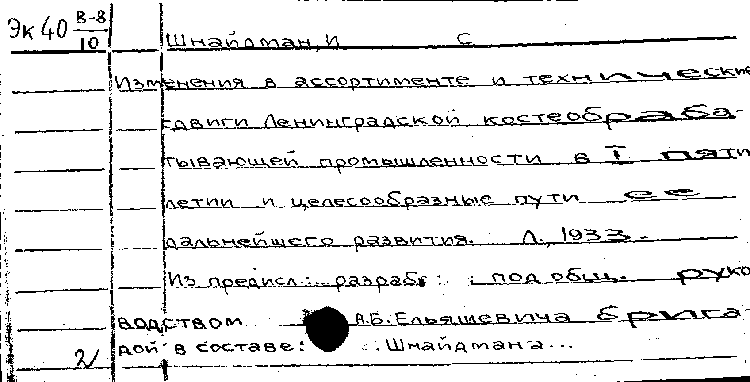 Эк 40 В-8/10
Шнайдман, И С
Изменения в ассортименте и технические
сдвиги Ленинградской костеобраба-
тывающей промышленности в I пяти
летии и целесообразные пути ее
дальнейшего развития. Л., 1933.
Из предисл.: разраб: под общ. руко
водством А.Б. Ельяшевича брига-
дой в составе: Шнайдмана...
2